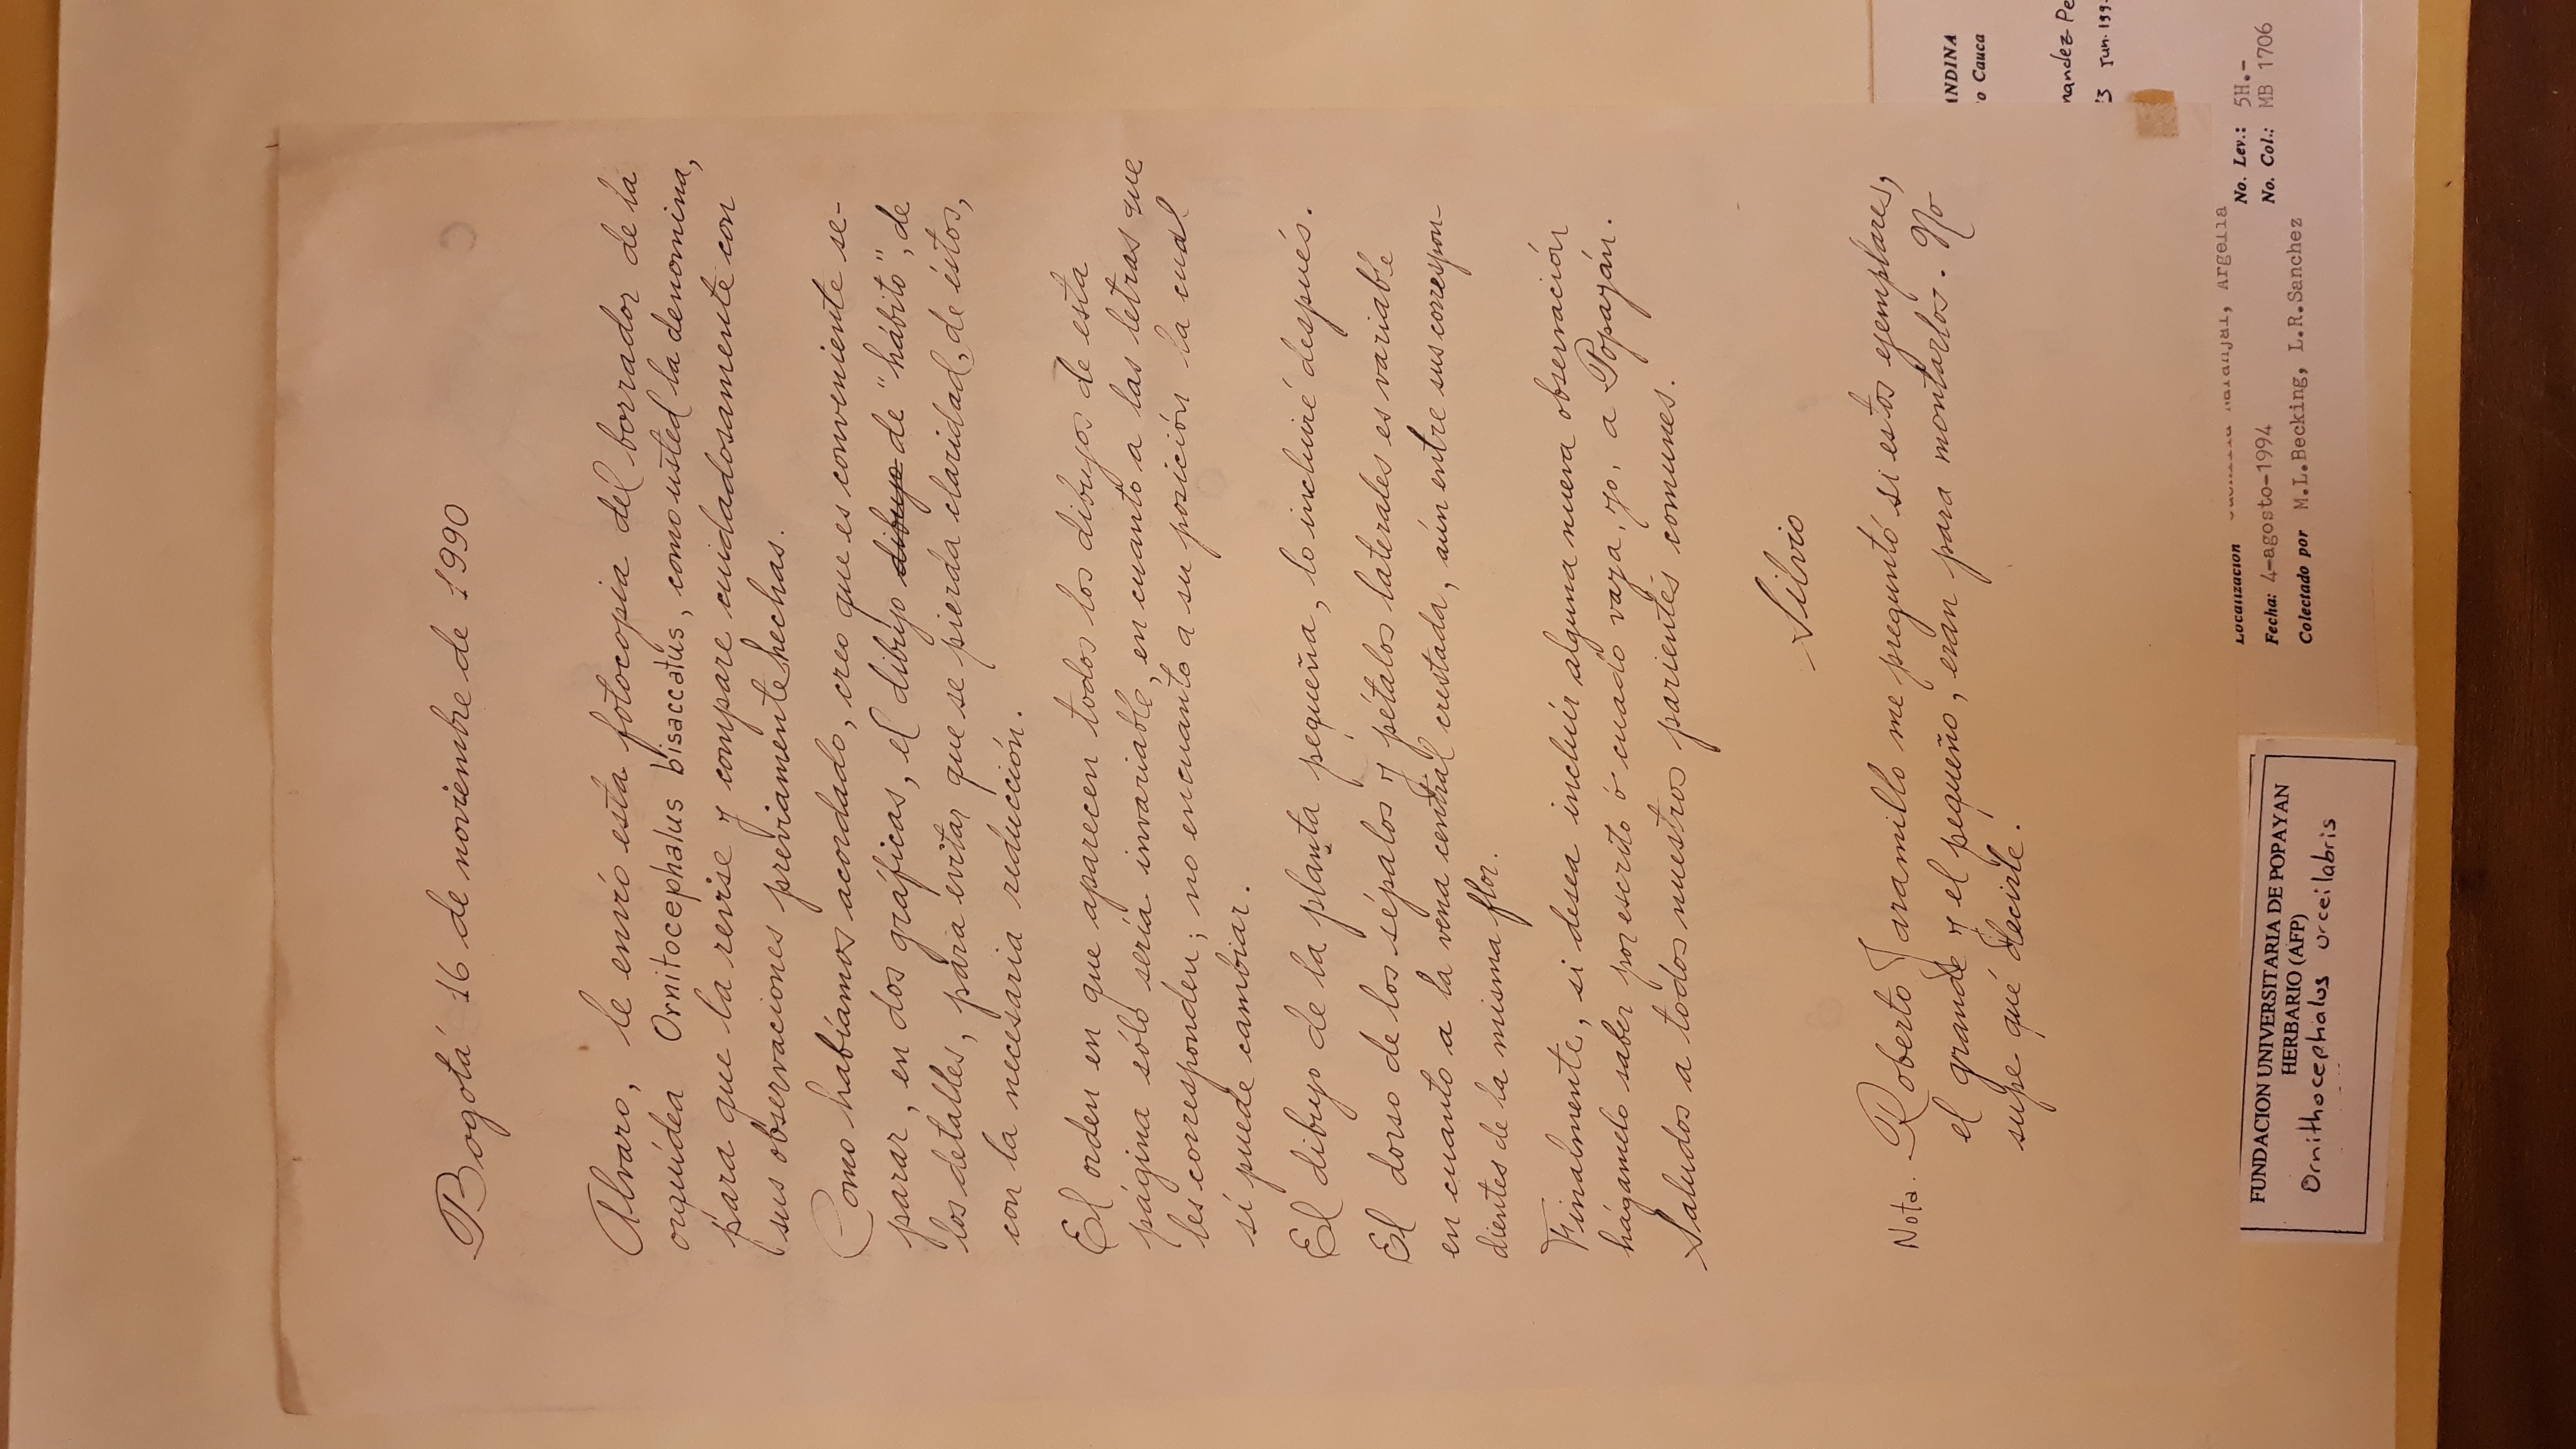 Bogotá 16 de noviembre de 1990
Alvaro, le envío esta fotocopia del borrador de la
orquídea Ornitocephalus bisaccatus, como usted la denomina,
para que la revise y compare cuidadosamente con
sus observaciones previamente hechas.
Como habíamos acordado, creo que es conveniente se-
parar, en dos gráficas, el dibujo dibujo de "hábito", de
los detalles, para evitar que se pierda claridad, de éstos,
con la necesaria reducción.
El orden en que aparecen todos los dibujos de esta
página sólo sería invariable, en cuanto a las letras que
les corresponden; no en cuanto a su posición la cual
sí puede cambiar.
El dibujo de la planta pequeña, lo incluiré después.
El dorso de los sépalos y pétalos laterales es variable
en cuanto a la vena central crestada, aún entre sus correspon
dientes de la misma flor.
Finalmente, si desea incluír alguna nueva observación
hágamelo saber por escrito ó cuado vaya, yo, a Popayán.
Saludos a todos nuestros parientes comunes.
Silvio
Nota. Roberto Jaramillo me preguntó si estos ejemplares,
el grande y el pequeño, eran para montarlos. No
supe qué decirle.
INDINA
o Cauca
nandez Pe
jun. 199
Localizacion Naranjal, Argelia
No. Lev.: 5H.-
Fecha: 4-agosto-1994
No. Col.: MB 1706
Colectado por M.L.Becking, L.R.Sanchez
FUNDACION UNIVERSITARIA DE POPAYAN
HERBARIO (AFP)
Ornithocephalus urceilabris